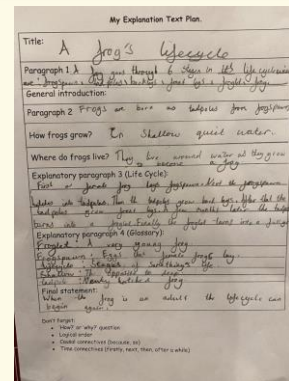 My Explanation Text Plan.
Title: A frog's lifecycle
Paragraph 1 A frog goes through 6 stages in its lifecycle
are: frogspawn,
General introduction:
Paragraph 2 Frogs are born as tadpoles from frogspawn
How frogs grow? In shallow quiet water.
Where do frogs live? They live around water as they grow
to become a frog
Explanatory paragraph 3 (Life Cycle):
First a female frog lays frogspawn. Next the frogspawn
hatches into tadpoles. Then the tadpoles grow back legs. After that the
tadpoles grow front legs. months later the tadpole
turns into a froglet. Finally the froglet turns into a frog
Explanatory paragraph 4 (Glossary):
Froglet: A very young frog
Frogspawn: Eggs that female frogs lay.
Lifecycle: Stages of something's life.
Shallow: The opposite to deep.
tadpole: hatched frog
Final statement:
When the frog is an adult the lifecycle can
begin again.
Don't forget:
• How? or why? question
• Logical order
• Causal connectives (because, so)
• Time connectives (firstly, next, then, after a while)